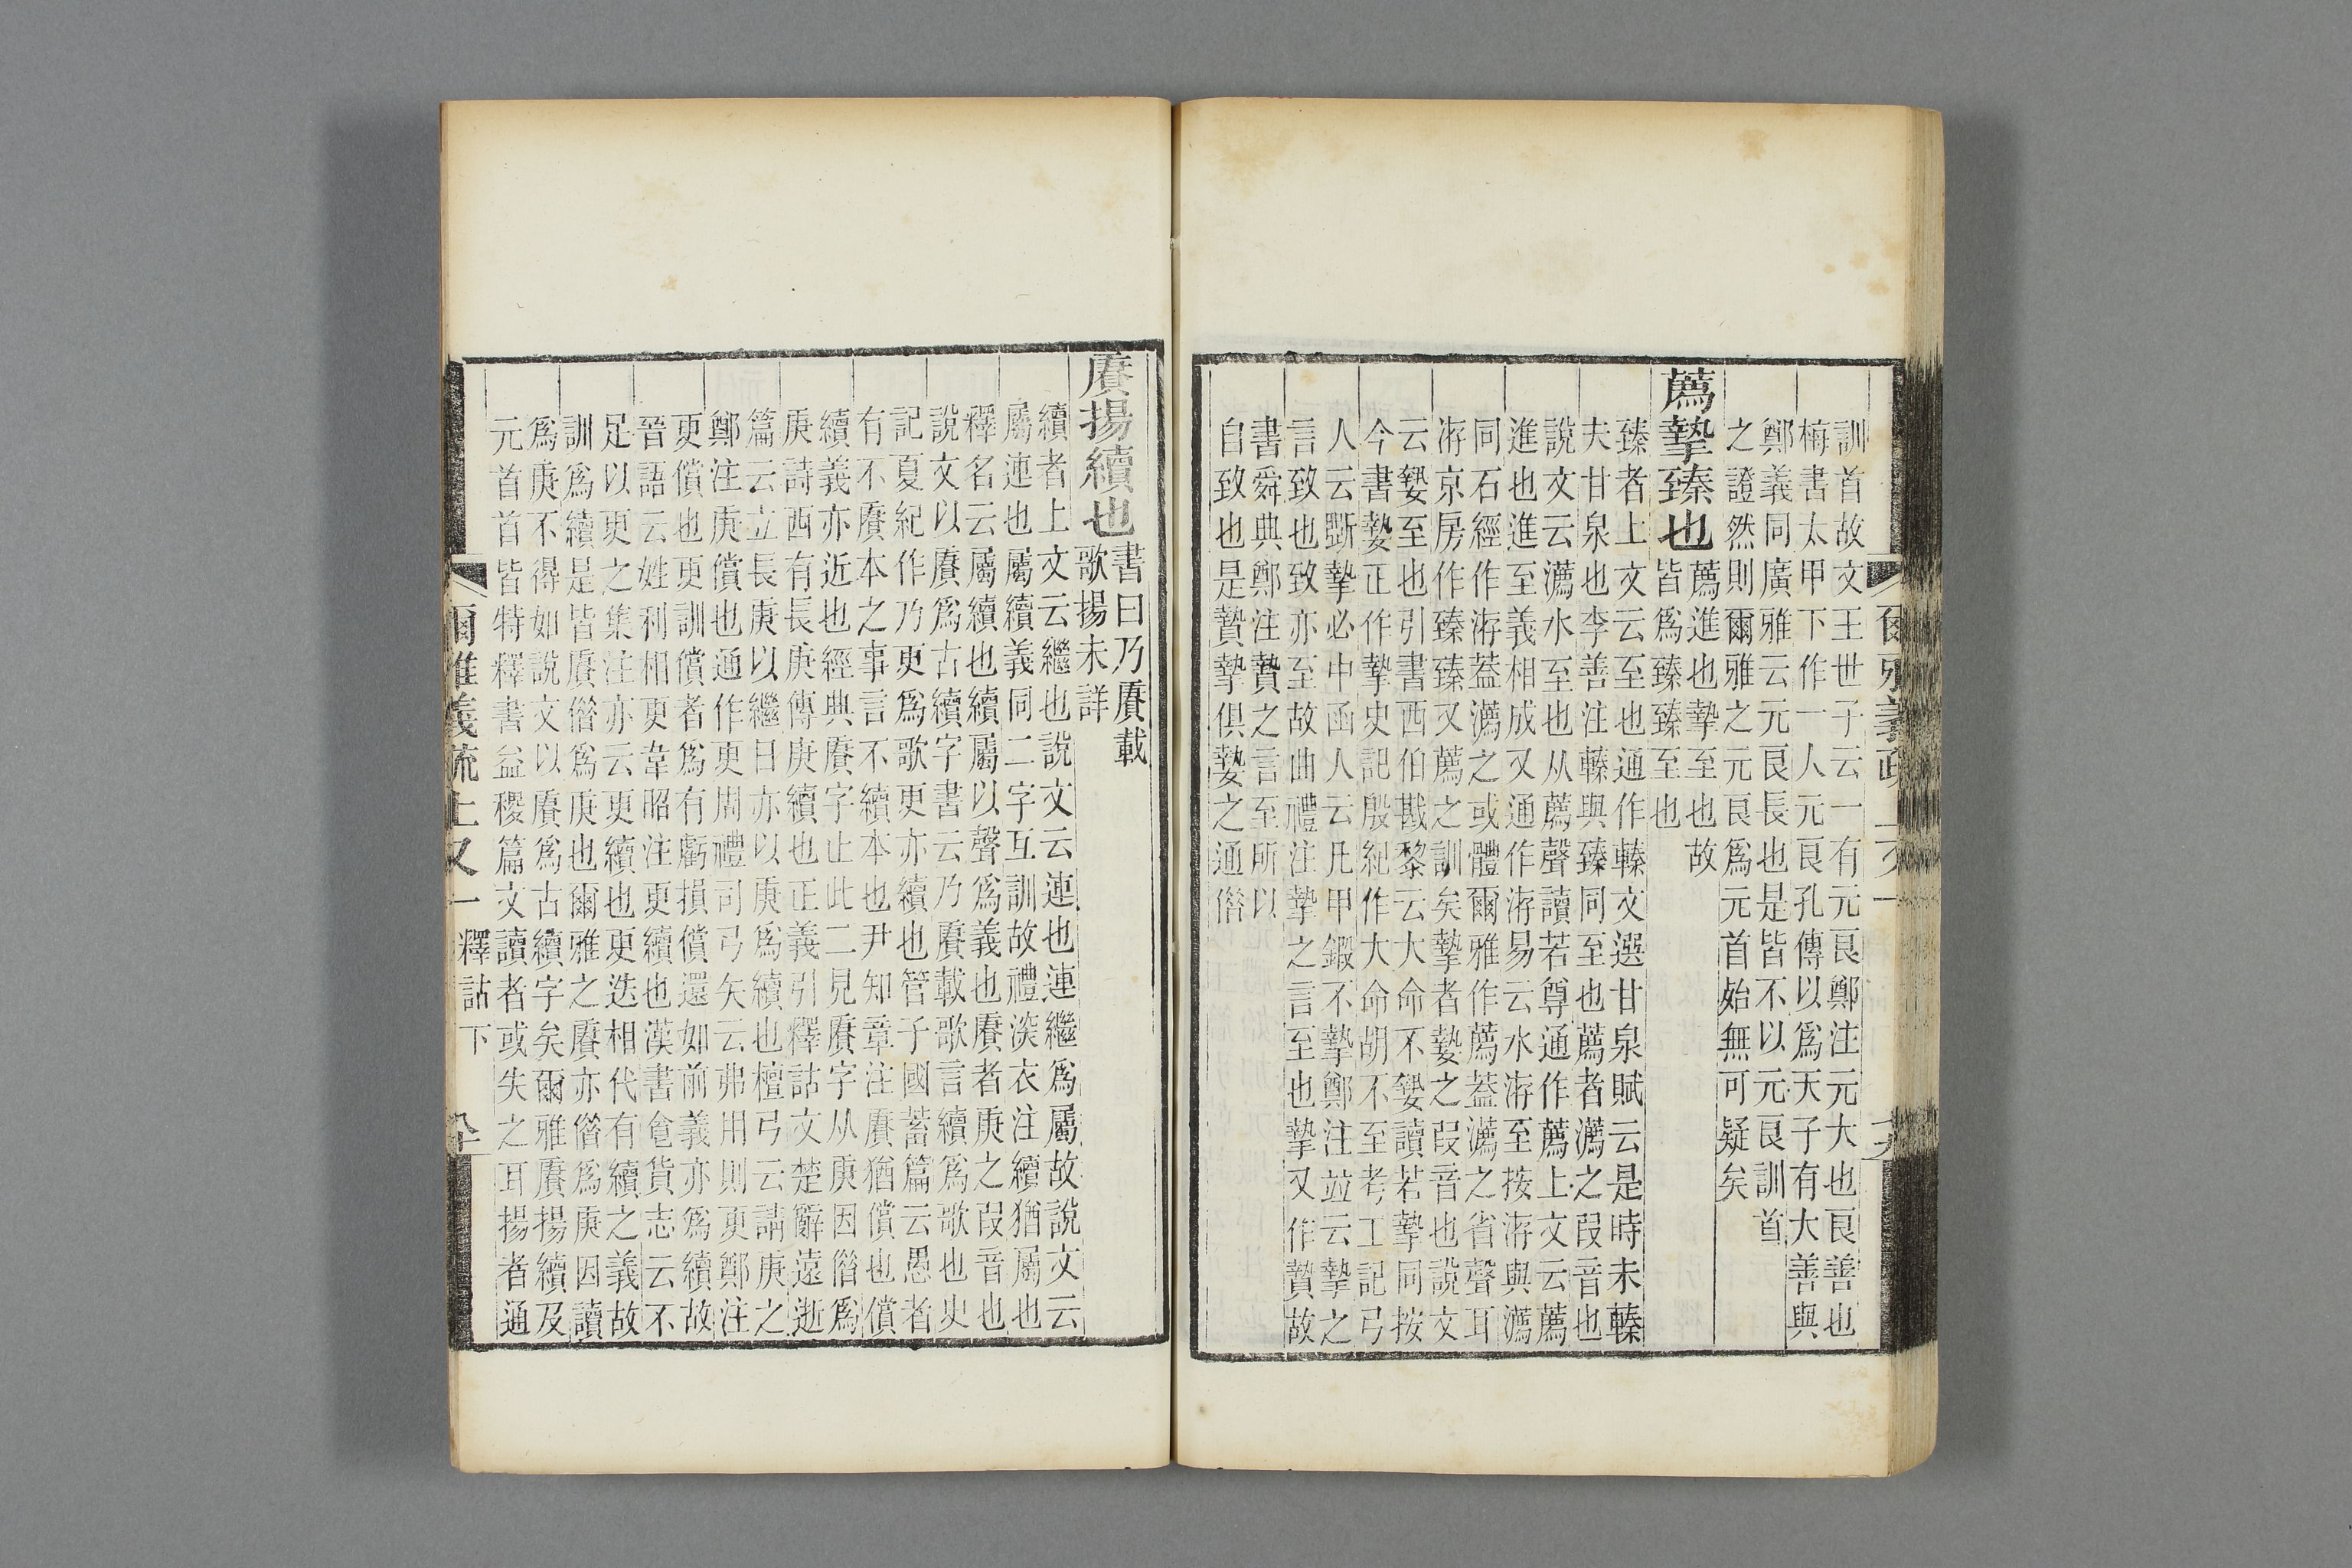 訓首故文王世子云一有元良鄭注元大也良善也
梅書太甲下作一人元良孔傳以爲天子有大善與
鄭義同廣雅云元良長也是皆不以元良訓首
之證然則爾雅之元良爲元首始無可疑矣
薦摯臻也
薦進也摯至也故
皆爲臻臻至也
臻者上文云至也通作轃文選甘泉賦云是時未轃
夫甘泉也李善注轃與臻同至也薦者瀳之叚音也
說文云瀳水至也从薦聲讀若尊通作薦上文云薦
進也進至義相成又通作洊易云水洊至按洊與瀳
同石經作洊蓋瀳之或體爾雅作薦蓋瀳之省聲耳
洊京房作臻臻又薦之訓矣摯者㙯之叚音也說文
云㙯至也引書西伯戡黎云大命不㙯讀若摯同按
今書㙯正作摯史記殷紀作大命胡不至考工記弓
人云斲摯必中函人云凡甲鍛不摯鄭注竝云摯之
言致也致亦至故曲禮注摯之言至也摯又作贄故
書舜典鄭注贄之言至所以
自致也是贄摯俱㙯之通借
爾雅義疏 上又一
賡揚續也
書曰乃賡載
歌揚未詳
續者上文云繼也說文云連也連繼爲屬故說文云
屬連也屬續義同二字互訓故禮深衣注續猶屬也
釋名云屬續也續屬以聲爲義也賡者庚之叚音也
說文以賡爲古續字書云乃賡載歌言續爲歌也史
記夏紀作乃更爲歌更亦續也管子國蓄篇云愚者
有不賡本之事言不續本也尹知章注賡猶償也償
續義亦近也經典賡字止此二見賡字从庚因借爲
庚詩西有長庚傳庚續也正義引釋詁文楚辭遠逝
篇云立長庚以繼日亦以庚爲續也檀弓云請庚之
鄭注庚償也通作更周禮司弓矢云弗用則更鄭注
更償也更訓償者爲有虧損償還如前義亦爲續故
晉語云姓利相更韋昭注更續也漢書食貨志云不
足以更之集注亦云更續也更迭相代有續之義故
訓爲續是皆賡借爲庚也爾雅之賡亦借爲庚因讀
爲庚不得如說文以賡爲古續字矣爾雅賡揚續及
元首首皆特釋書益稷篇文讀者或失之耳揚者通
爾雅義疏 上又一 釋詁下